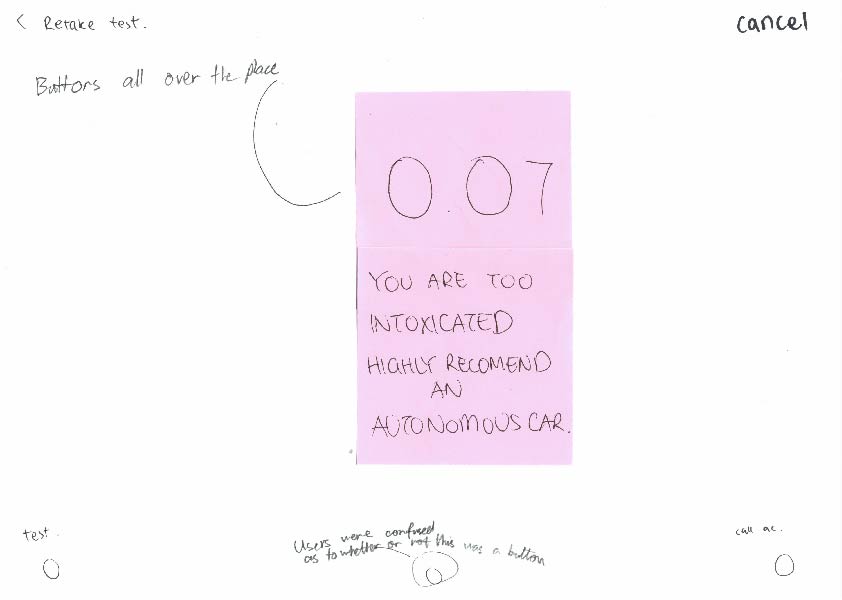 < Retake test.
cancel
Buttons all over the place
0.07
YOU ARE TOO
INTOXICATED
HIGHLY RECOMEND
AN
AUTONOMOUS CAR.
test.
Users were confused
as to whether or not this was a button
call ac.